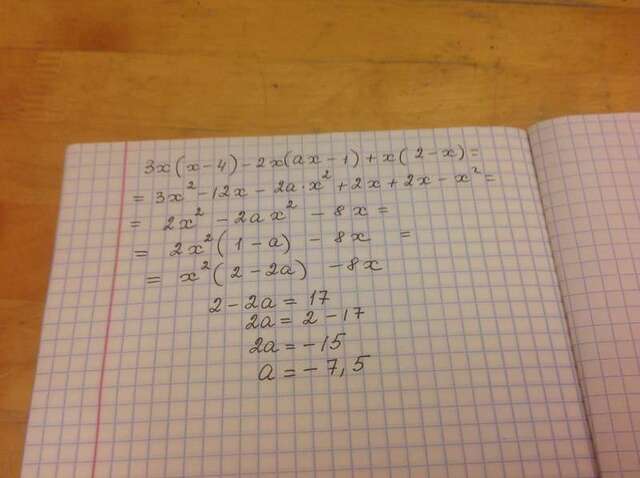 3x(x-4)-2x(ax-1)+x(2-x)=
=3x²-12x-2a·x²+2x+2x-x²=
= 2x² -2ax² -8x =
= 2x²(1-a) -8x =
= x²(2-2a) -8x
2-2a=17
2a=2-17
2a=-15
a=-7,5